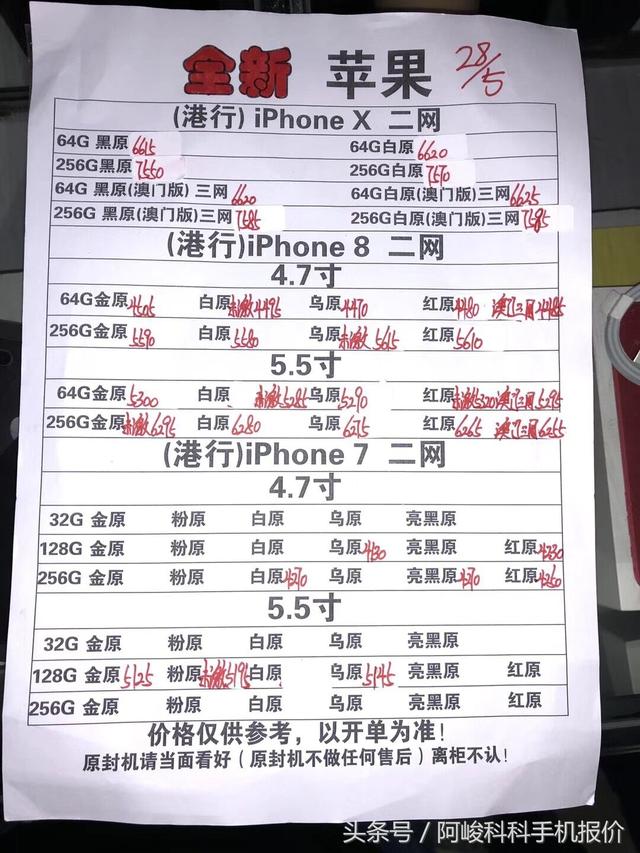 全新 苹果 28/5
(港行) iPhone X 二网
64G 黑原6615 64G白原6620
256G黑原7550 256G白原7570
64G 黑原(澳门版)三网6620 64G白原(澳门版)三网6625
256G 黑原(澳门版)三网7585 256G白原(澳门版)三网7585
(港行)iPhone 8 二网
4.7寸
64G金原4505 白原未激4495 乌原4470 红原4480 澳门三网4485
256G金原5590 白原5580 乌原未激5615 红原5610
5.5寸
64G金原5300 白原未激5285 乌原5290 红原未激5320澳门三网5295
256G金原未激6295 白原6280 乌原6275 红原6265 澳门三网6255
(港行)iPhone 7 二网
4.7寸
32G 金原 粉原 白原 乌原 亮黑原
128G 金原 粉原 白原 乌原4130 亮黑原 红原4230
256G 金原 粉原 白原4270 乌原 亮黑原4270 红原4260
5.5寸
32G 金原 粉原 白原 乌原 亮黑原
128G 金原5125 粉原未激5195白原 乌原5145亮黑原 红原
256G 金原 粉原 白原 乌原 亮黑原 红原
价格仅供参考，以开单为准！
原封机请当面看好（原封机不做任何售后）离柜不认！
头条号 / 阿峻科科手机报价